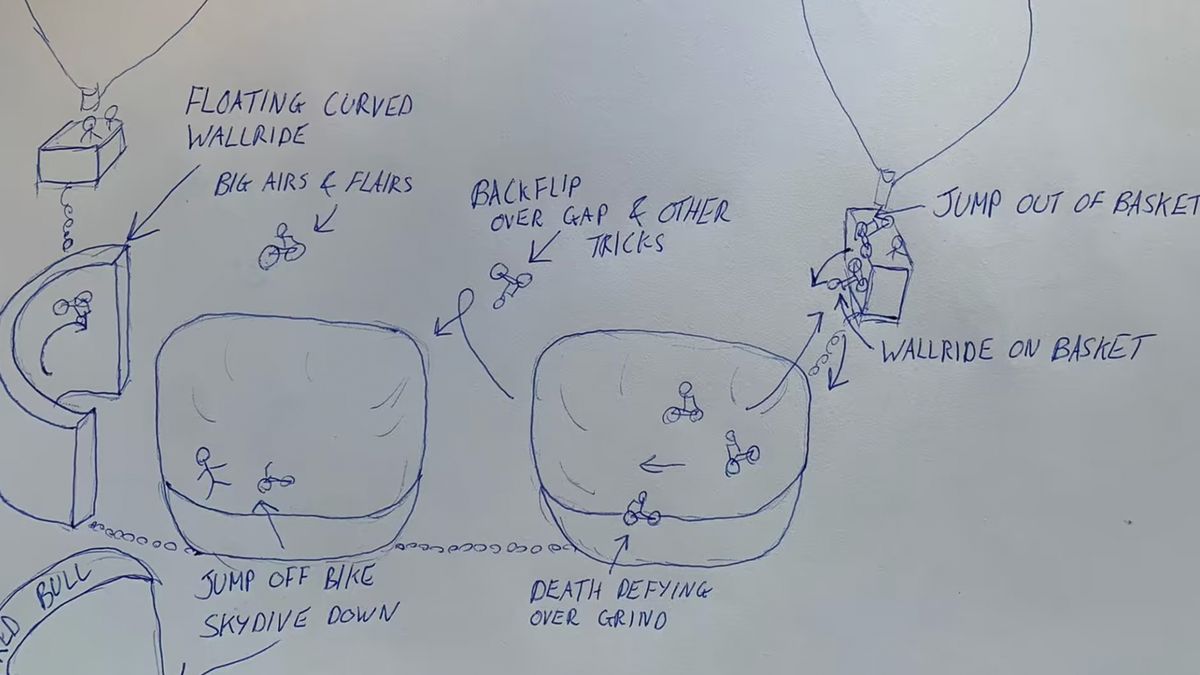 FLOATING CURVED
WALLRIDE
BIG AIRS & FLAIRS
BACKFLIP
OVER GAP & OTHER
TRICKS
JUMP OUT OF BASKET
WALLRIDE ON BASKET
JUMP OFF BIKE
SKYDIVE DOWN
DEATH DEFYING
OVER GRIND
RED BULL